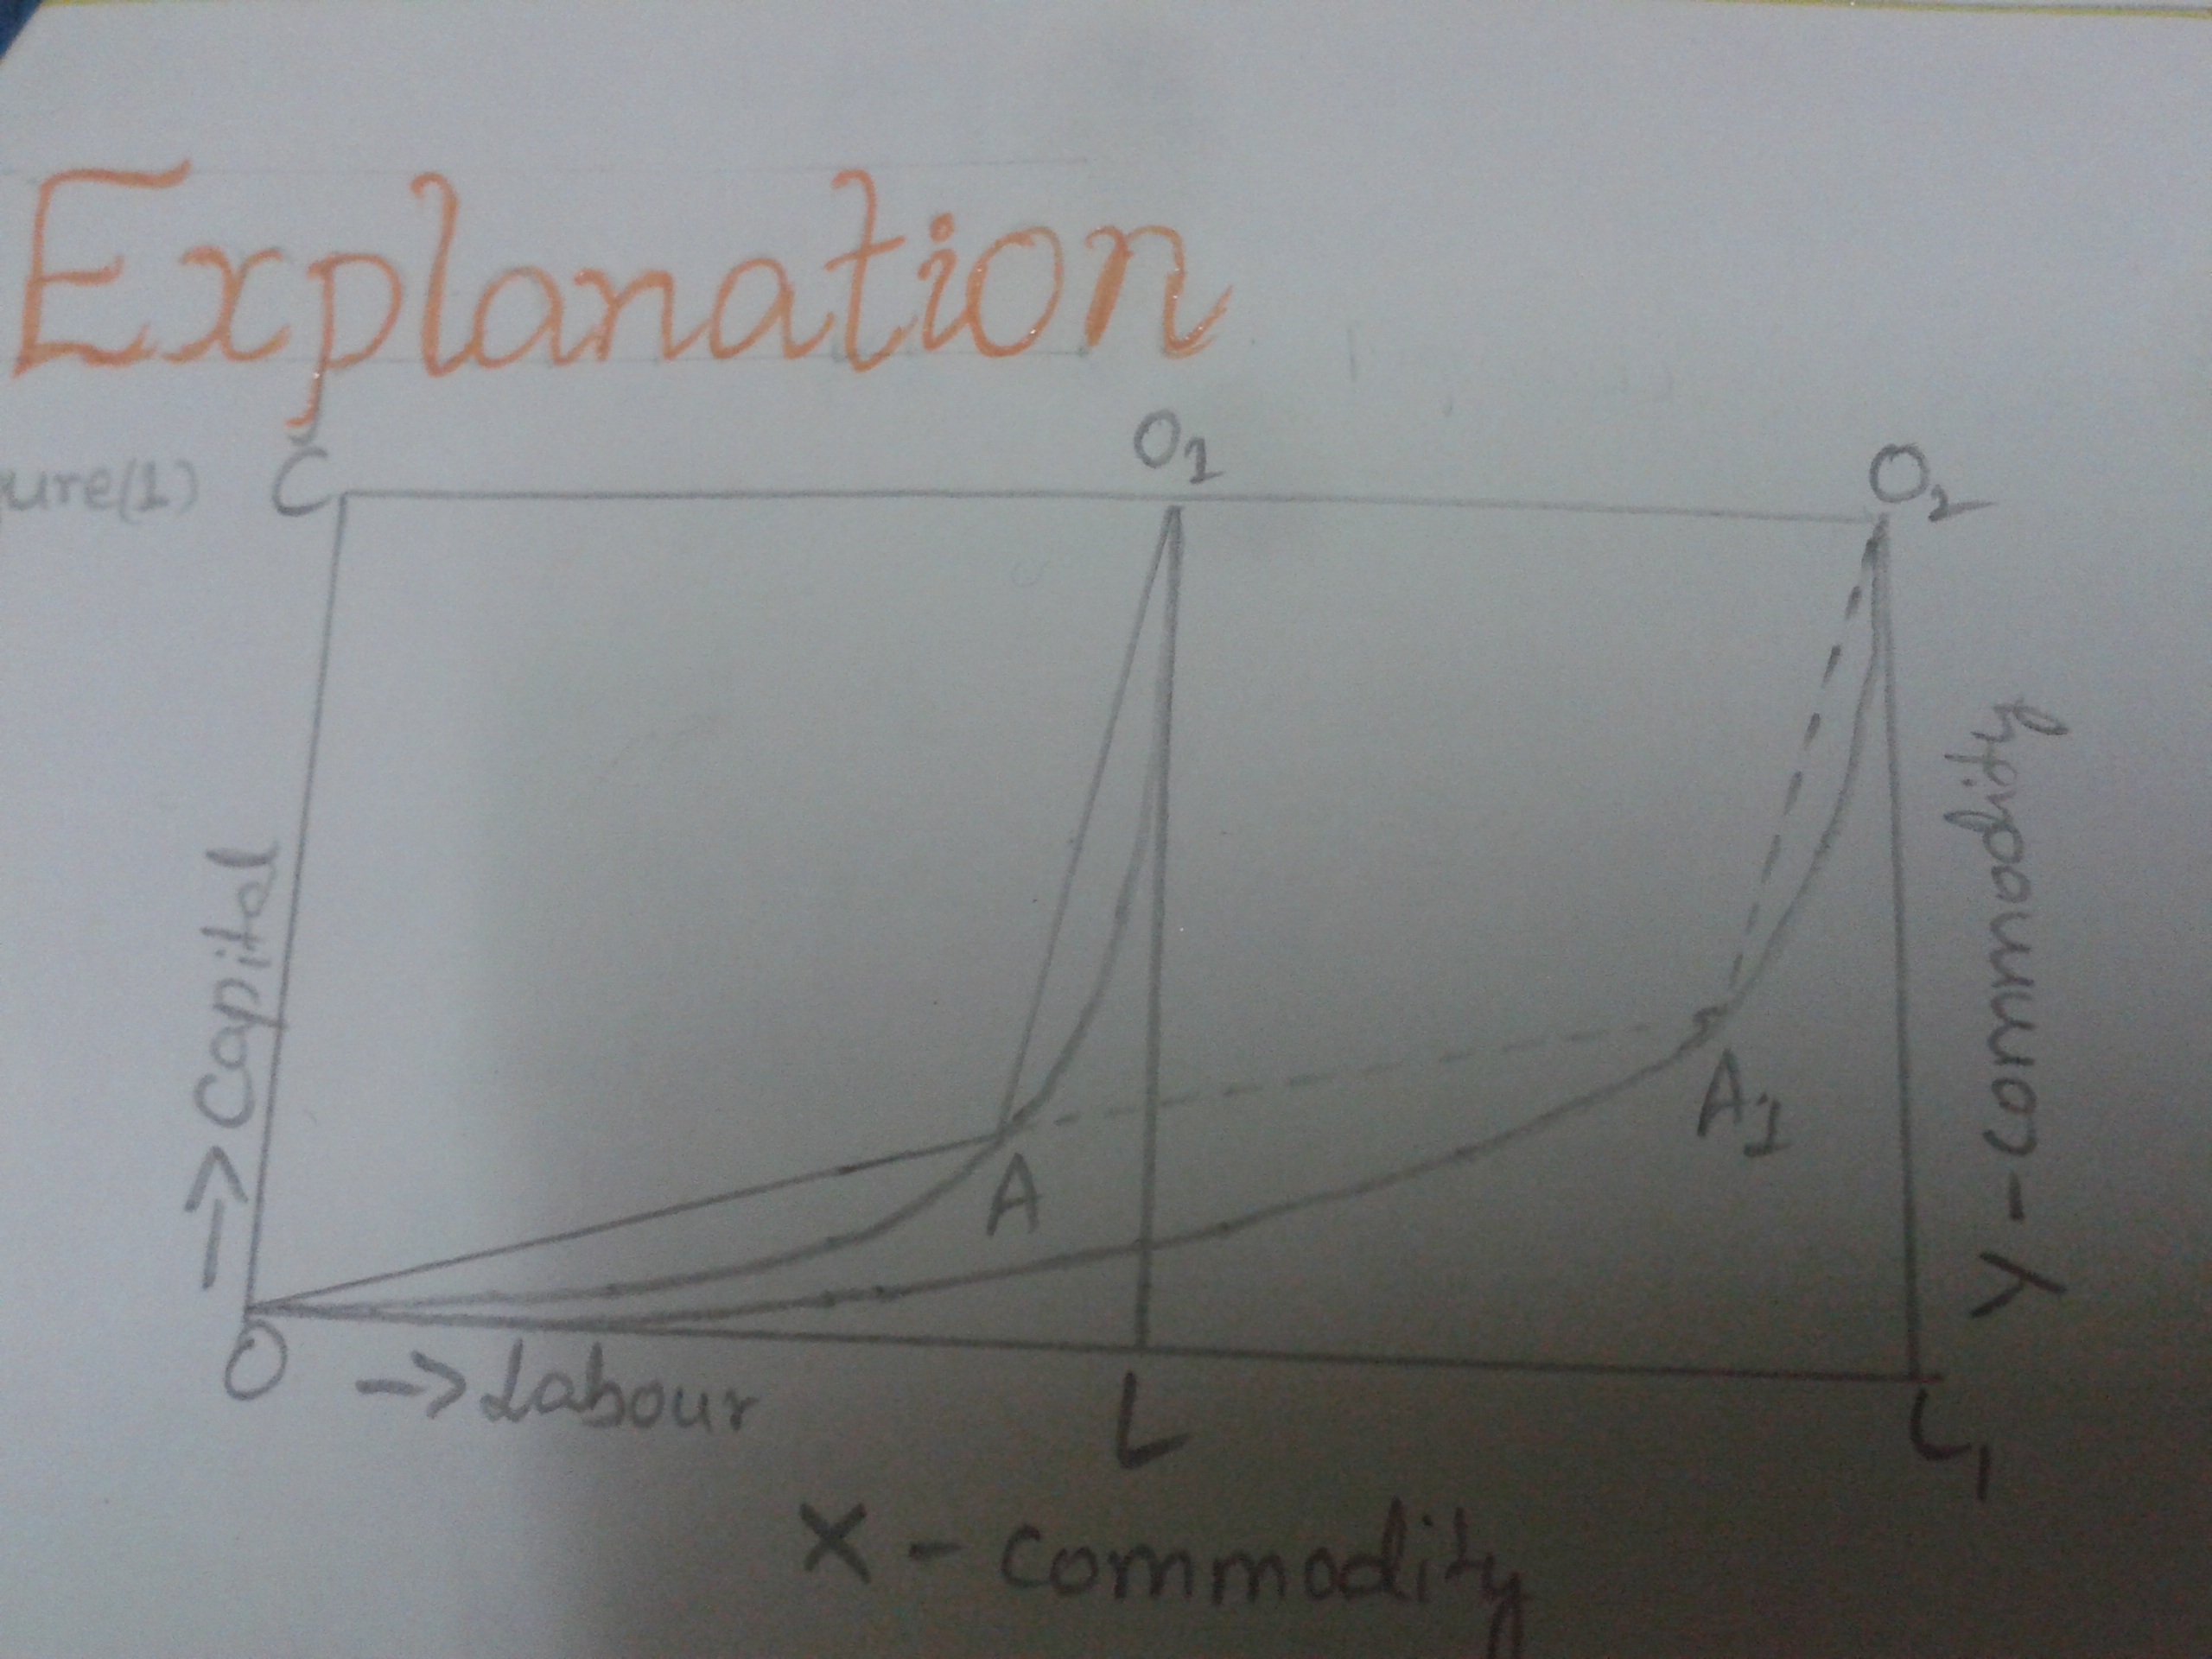 Explanation
ure(1)
C
O1
O2
-> Capital
Y - commodity
A
A1
O
-> Labour
L
L1
X - commodity